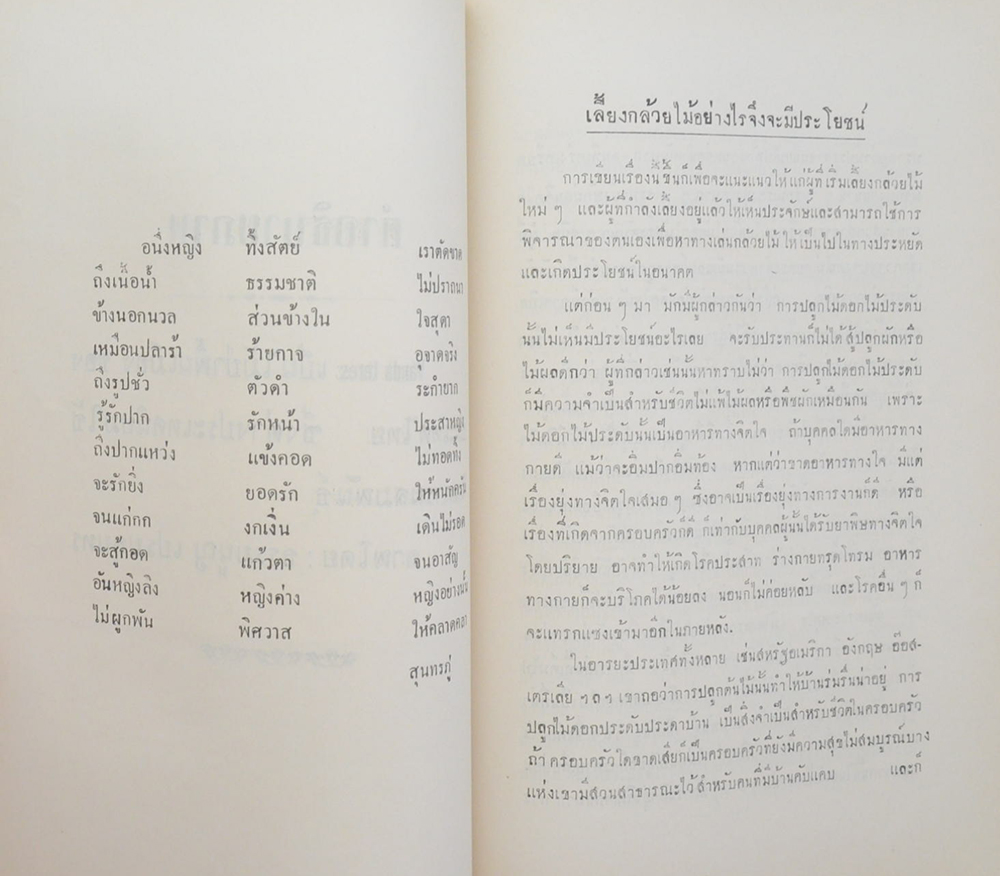 อนึ่งหญิง ทิ้งสัตย์ เราตัดขาด
ถึงเนื้อน้ำ ธรรมชาติ ไม่ปรารถนา
ข้างนอกนวล ส่วนข้างใน ใจสุดา
เหมือนปลาร้า ร้ายกาจ อุจาดจริง
ถึงรูปชั่ว ตัวดำ ระกำยาก
รู้รักปาก รักหน้า ประสาหญิง
ถึงปากแหว่ง แข้งคอด ไม่ทอดทิ้ง
จะรักยิ่ง ยอดรัก ให้หนักครัน
จนแก่กก งกเงิ่น เดินไม่รอด
จะสู้กอด แก้วตา จนอาสัญ
อันหญิงลิง หญิงค่าง หญิงอย่างนั้น
ไม่ผูกพัน พิศวาส ให้คลาดคลา
สุนทรภู่
เลี้ยงกล้วยไม้อย่างไรจึงจะมีประโยชน์
การเขียนเรื่องนี้ขึ้นก็เพื่อจะแนะแนวให้แก่ผู้ที่เริ่มเลี้ยงกล้วยไม้
ใหม่ ๆ และผู้ที่กำลังเลี้ยงอยู่แล้วให้เห็นประจักษ์และสามารถใช้การ
พิจารณาของตนเองเพื่อหาทางเล่นกล้วยไม้ให้เป็นไปในทางประหยัด
และเกิดประโยชน์ในอนาคต
แต่ก่อน ๆ มา มักมีผู้กล่าวกันว่า การปลูกไม้ดอกไม้ประดับ
นั้นไม่เห็นมีประโยชน์อะไรเลย จะรับประทานก็ไม่ได้ สู้ปลูกผักหรือ
ไม้ผลดีกว่า ผู้ที่กล่าวเช่นนั้นหาทราบไม่ว่า การปลูกไม้ดอกไม้ประดับ
ก็มีความจำเป็นสำหรับชีวิตไม่แพ้ไม้ผลหรือพืชผักเหมือนกัน เพราะ
ไม้ดอกไม้ประดับนั้นเป็นอาหารทางจิตใจ ถ้าบุคคลใดมีอาหารทาง
กายดี แม้ว่าจะอิ่มปากอิ่มท้อง หากแต่ว่าขาดอาหารทางใจ มีแต่
เรื่องยุ่งทางจิตใจเสมอ ๆ ซึ่งอาจเป็นเรื่องยุ่งทางการงานก็ดี หรือ
เรื่องที่เกิดจากครอบครัวก็ดี ก็เท่ากับบุคคลผู้นั้นได้รับยาพิษทางจิตใจ
โดยปริยาย อาจทำให้เกิดโรคประสาท ร่างกายทรุดโทรม อาหาร
ทางกายก็จะบริโภคได้น้อยลง นอนก็ไม่ค่อยหลับ และโรคอื่น ๆ ก็
จะแทรกแซงเข้ามาอีกในภายหลัง.
ในอารยะประเทศทั้งหลาย เช่นสหรัฐอเมริกา อังกฤษ ออส-
เตรเลีย ฯ ล ฯ เขาถือว่าการปลูกต้นไม้นั้นทำให้บ้านร่มรื่นน่าอยู่ การ
ปลูกไม้ดอกประดับประดาบ้าน เป็นสิ่งจำเป็นสำหรับชีวิตในครอบครัว
ถ้า ครอบครัวใดขาดเสียก็เป็นครอบครัวที่ยังมีความสุขไม่สมบูรณ์บาง
แห่งเขามีสวนสาธารณะไว้สำหรับคนที่มีบ้านคับแคบ และก็